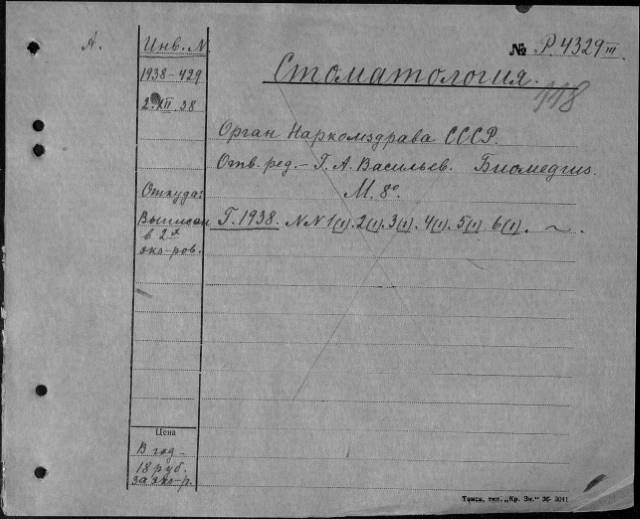 А.
Инв. N.
№ Р. 4329 III
1938-429
Стоматология.
118
2.XII.38
Орган Наркомздрава СССР.
Отв. ред. - Г. А. Васильев. Биомедгиз.
М. 8°.
Откуда:
Выписан Г. 1938. NN 1(1). 2(1). 3(1). 4(1). 5(1) 6(1). ~.
в 2х
экз-ров.
Цена
В год -
18 руб.
за экз-р.
Томск, тип. „Кр. Зн." 36- 3011